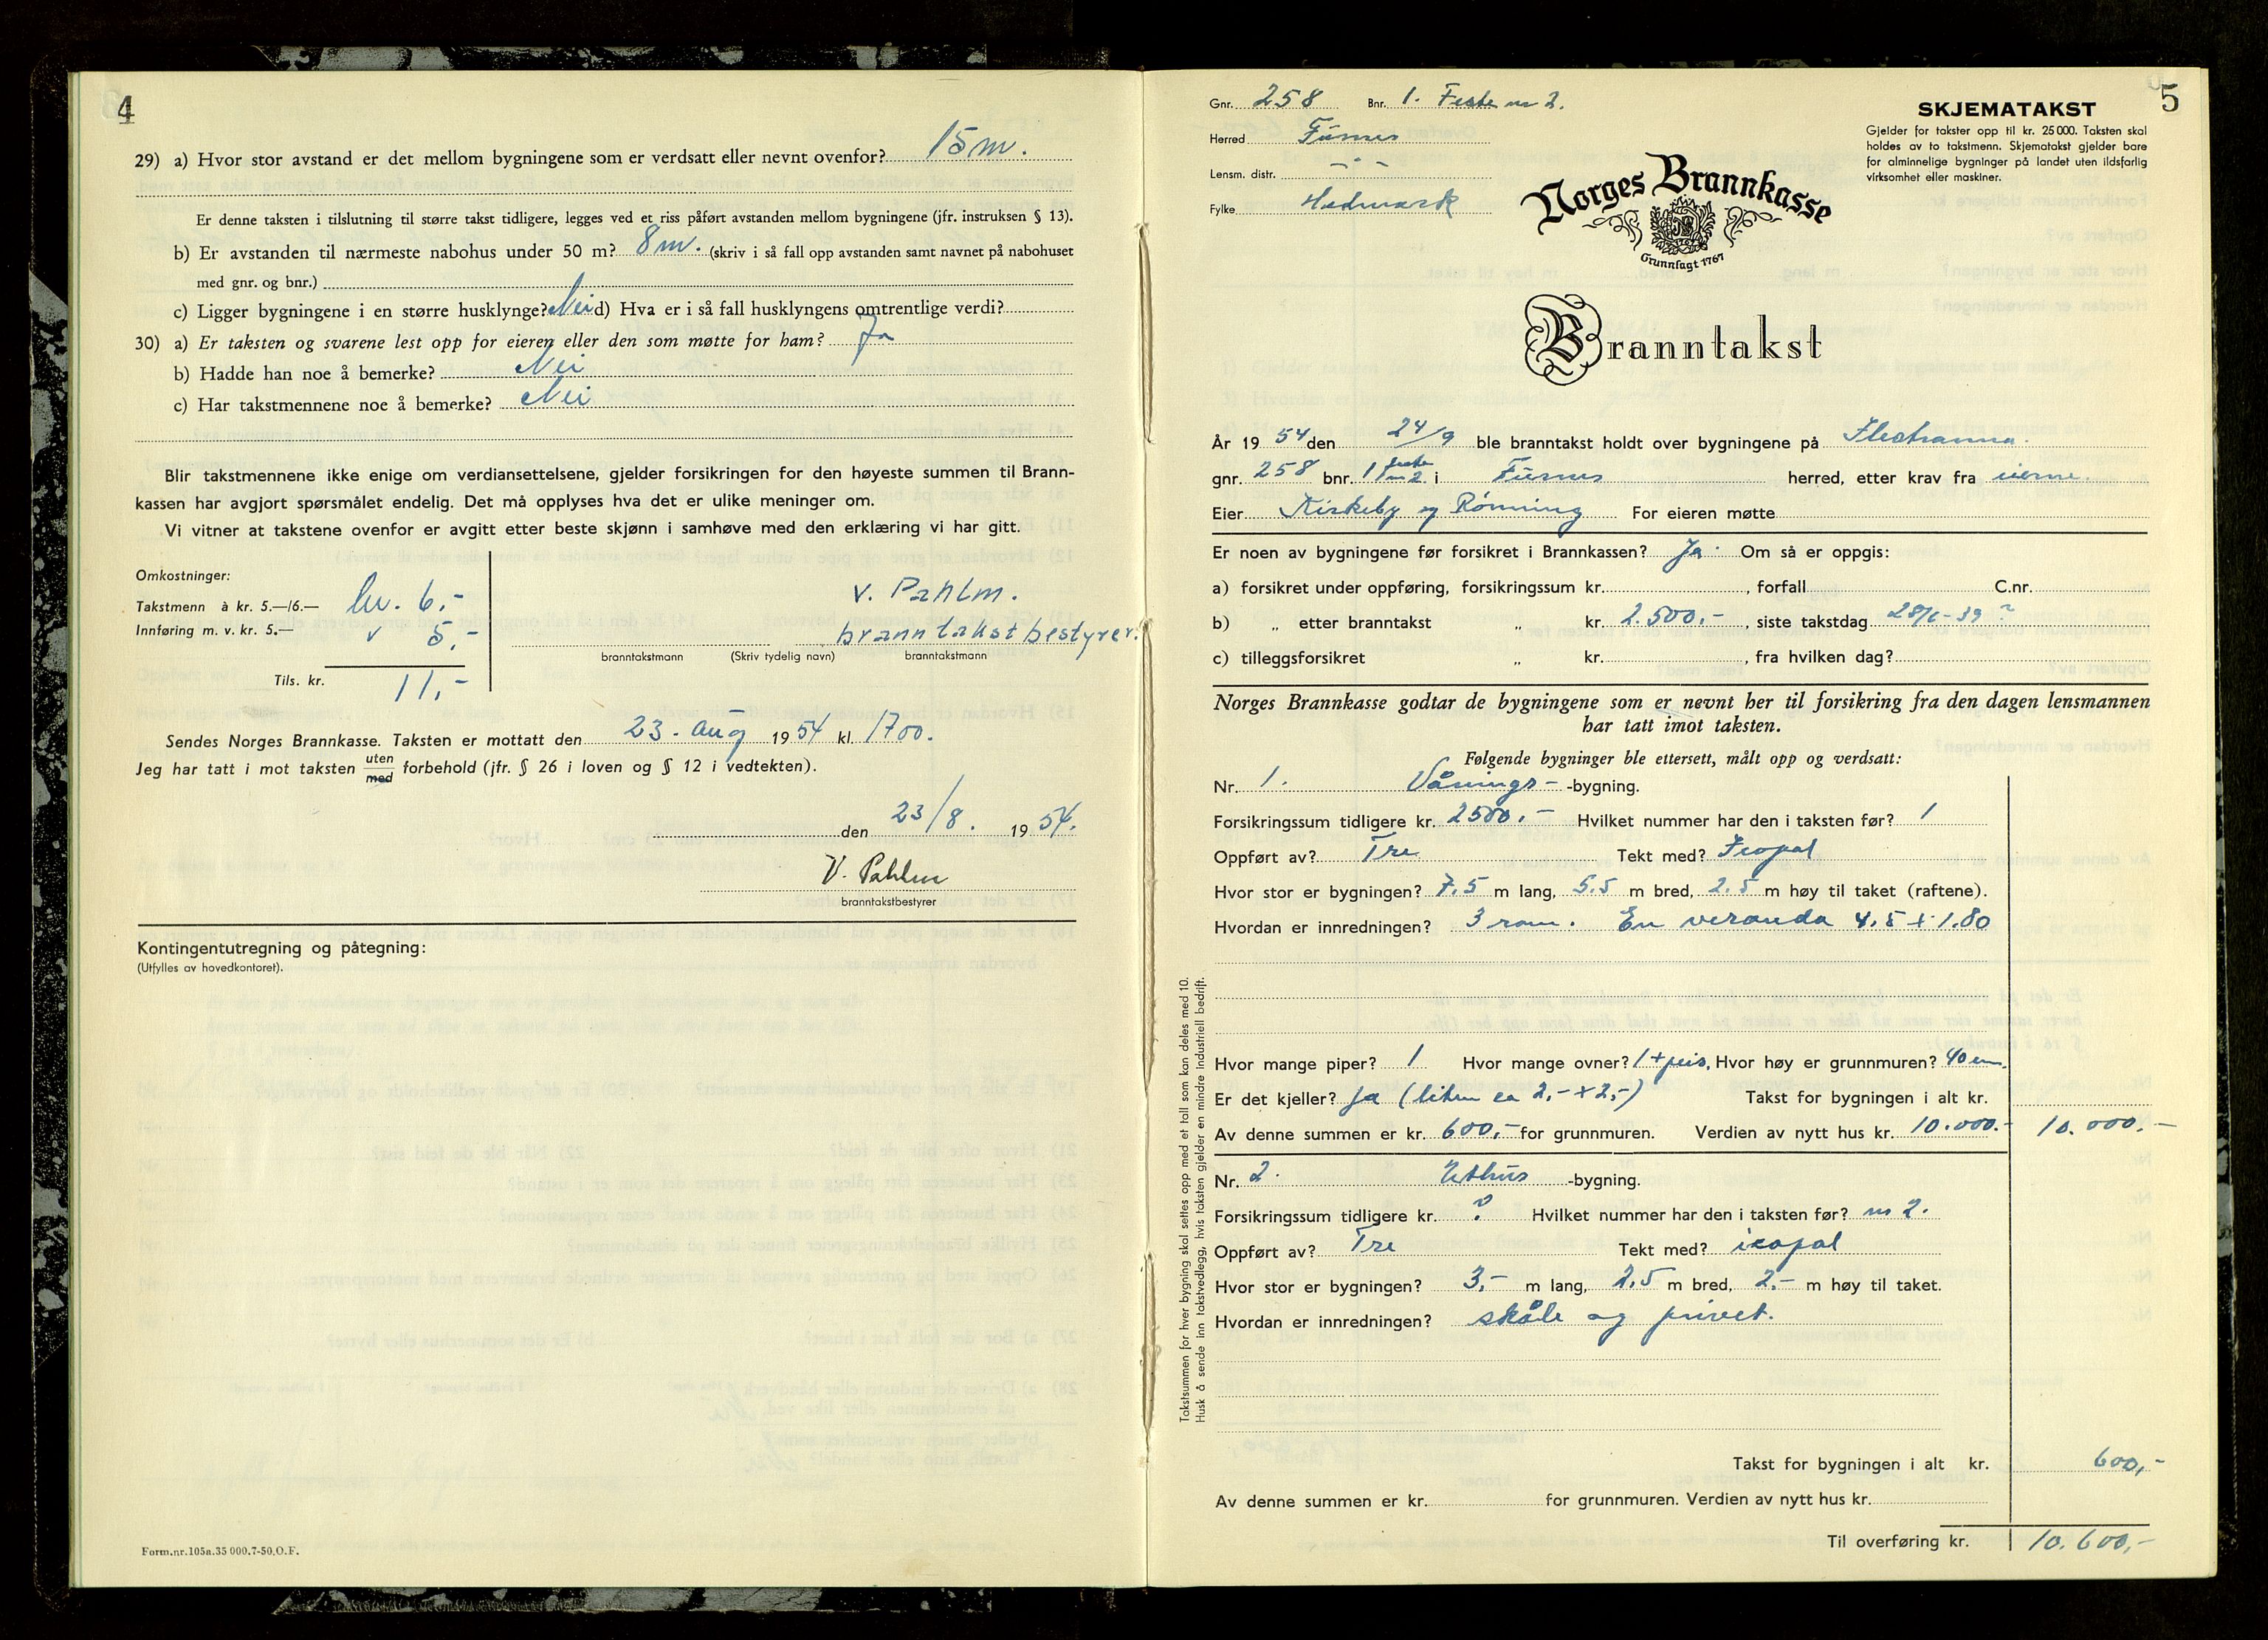 4
29) a) Hvor stor avstand er det mellom bygningene som er verdsatt eller nevnt ovenfor? 15 m.
Er denne taksten i tilslutning til større takst tidligere, legges ved et riss påført avstanden mellom bygningene (jfr. instruksen § 13).
b) Er avstanden til nærmeste nabohus under 50 m? 8 m. (skriv i så fall opp avstanden samt navnet på nabohuset
med gnr. og bnr.)
c) Ligger bygningene i en større husklynge? Nei d) Hva er i så fall husklyngens omtrentlige verdi?
30) a) Er taksten og svarene lest opp for eieren eller den som møtte for ham? Ja
b) Hadde han noe å bemerke? Nei
c) Har takstmennene noe å bemerke? Nei
Blir takstmennene ikke enige om verdiansettelsene, gjelder forsikringen for den høyeste summen til Brann-
kassen har avgjort spørsmålet endelig. Det må opplyses hva det er ulike meninger om.
Vi vitner at takstene ovenfor er avgitt etter beste skjønn i samhøve med den erklæring vi har gitt.
Omkostninger:
Takstmenn à kr. 5.—/6.— kr. 6,-
Innføring m. v. kr. 5.— " 5,-
Tils. kr. 11,-
V. Pahlm.
branntakstbestyrer.
branntakstmann (Skriv tydelig navn) branntakstmann
Sendes Norges Brannkasse. Taksten er mottatt den 23. aug 1954 kl. 1700.
Jeg har tatt i mot taksten uten med forbehold (jfr. § 26 i loven og § 12 i vedtekten).
den 23/8. 1954.
V. Pahlm
branntakstbestyrer
Kontingentutregning og påtegning:
(Utfylles av hovedkontoret).
Form.nr.105a.35 000.7-50.O.F.
5
Gnr. 258 Bnr. 1. Feste nr 2.
Herred Furnes
Lensm. distr. - " -
Fylke Hedmark
SKJEMATAKST
Gjelder for takster opp til kr. 25 000. Taksten skal
holdes av to takstmenn. Skjematakst gjelder bare
for alminnelige bygninger på landet uten ildsfarlig
virksomhet eller maskiner.
Norges Brannkasse
Grunnlagt 1767
Branntakst
År 1954 den 24/9 ble branntakst holdt over bygningene på
gnr. 258 bnr. 1 feste nr 2. i Furnes herred, etter krav fra eierne.
Eier Kirkeby og Rønning For eieren møtte
Er noen av bygningene før forsikret i Brannkassen? Ja. Om så er oppgis:
a) forsikret under oppføring, forsikringssum kr. , forfall C.nr.
b) „ etter branntakst „ kr. 2.500,- , siste takstdag 28/6-39 ?
c) tilleggsforsikret „ kr. , fra hvilken dag?
Norges Brannkasse godtar de bygningene som er nevnt her til forsikring fra den dagen lensmannen
har tatt imot taksten.
Følgende bygninger ble ettersett, målt opp og verdsatt:
Nr. 1. Vånings- -bygning.
Forsikringssum tidligere kr. 2500.- Hvilket nummer har den i taksten før? 1
Oppført av? Tre Tekt med? Icopal
Hvor stor er bygningen? 7.5 m lang, 5.5 m bred, 2.5 m høy til taket (raftene).
Hvordan er innredningen? 3 rom. En veranda 4,5 x 1.80
Hvor mange piper? 1 Hvor mange ovner? 1 + peis, Hvor høy er grunnmuren? 40 cm.
Er det kjeller? Ja (liten ca 2,- x 2,-) Takst for bygningen i alt kr.
Av denne summen er kr. 600,- for grunnmuren. Verdien av nytt hus kr. 10.000.- 10.000.-
Nr. 2. Uthus -bygning.
Forsikringssum tidligere kr. ? Hvilket nummer har den i taksten før? nr 2.
Oppført av? Tre Tekt med? icopal
Hvor stor er bygningen? 3,- m lang, 2.5 m bred, 2.- m høy til taket.
Hvordan er innredningen? skåle og privet.
Takst for bygningen i alt kr. 600,-
Av denne summen er kr. for grunnmuren. Verdien av nytt hus kr.
Til overføring kr. 10.600,-
Takstsummen for hver bygning skal settes opp med et tall som kan deles med 10.
Husk å sende inn takstvedlegg, hvis taksten gjelder en mindre industriell bedrift.